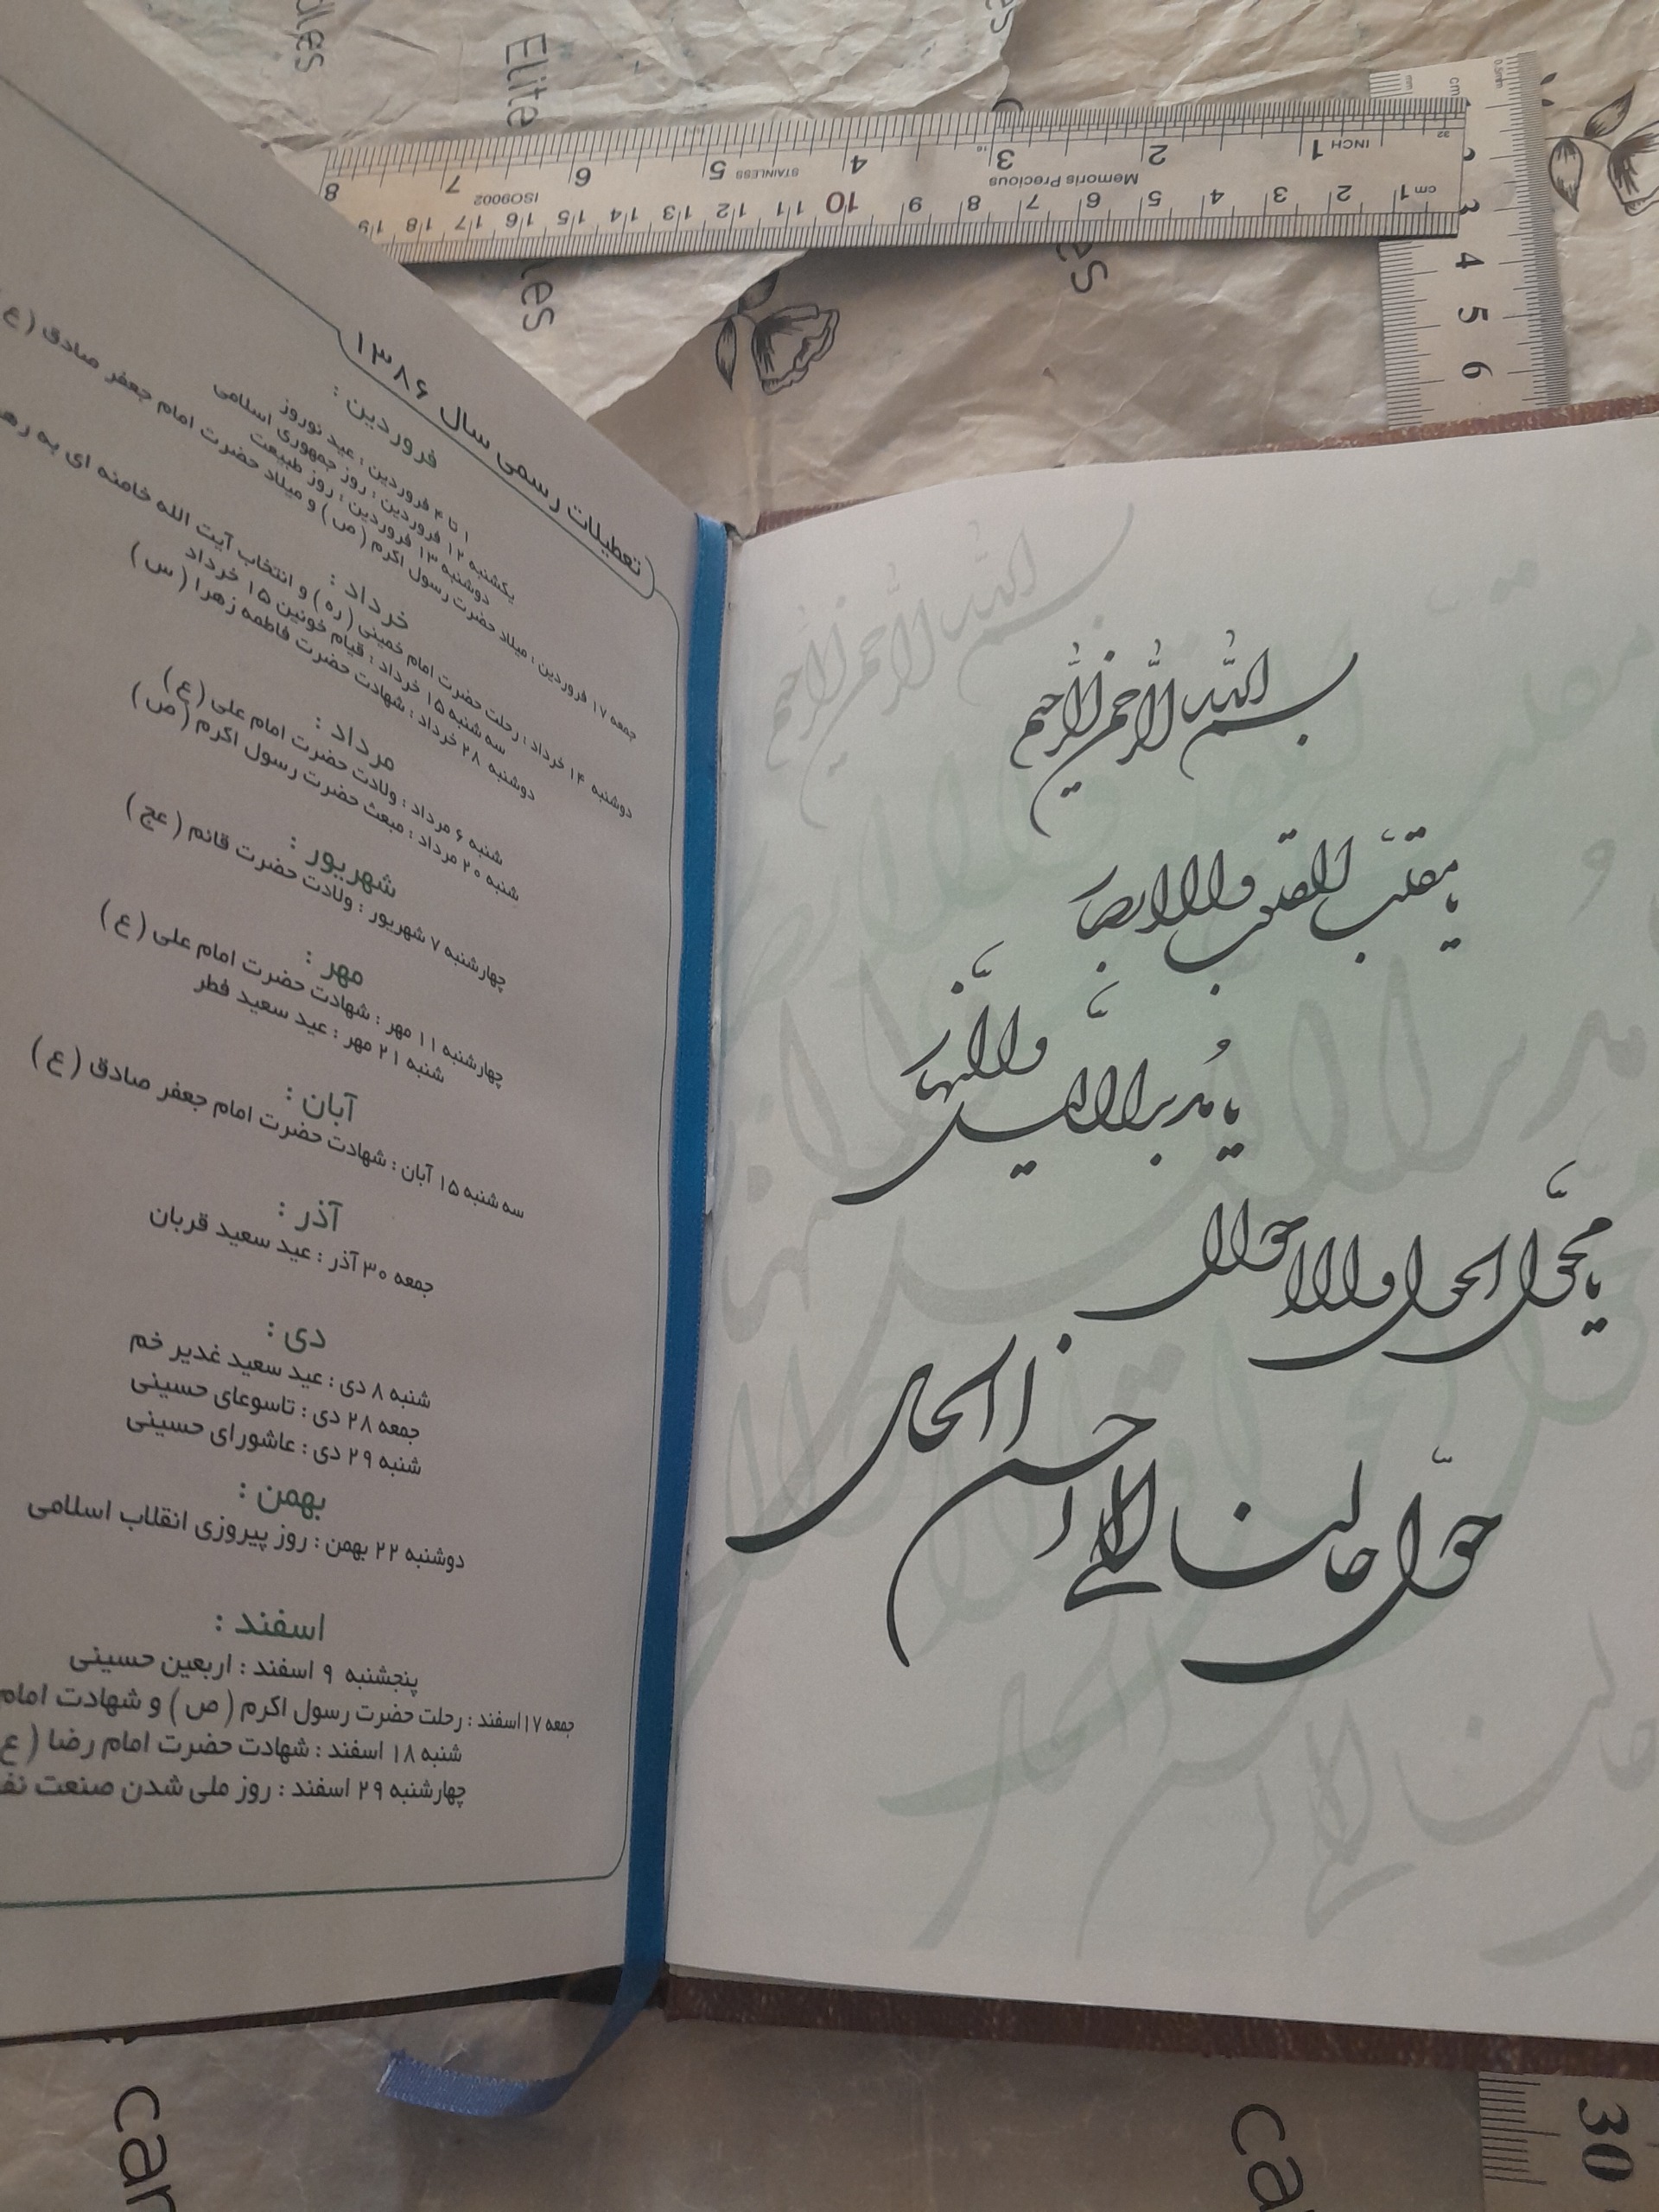 بسم الله الرحمن الرحیم
یا مقلب القلوب والابصار
یا مدبر اللیل والنهار
یا محول الحول والاحوال
حول حالنا الی احسن الحال
تعطیلات رسمی سال ۱۳۸۶
فروردین :
۱ تا ۴ فروردین : عید نوروز
یکشنبه ۱۲ فروردین : روز جمهوری اسلامی
دوشنبه ۱۳ فروردین : روز طبیعت
جمعه ۱۷ فروردین : میلاد حضرت رسول اکرم (ص) و میلاد حضرت امام جعفر صادق (ع
خرداد :
دوشنبه ۱۴ خرداد : رحلت حضرت امام خمینی (ره) و انتخاب آیت الله خامنه ای به
سه شنبه ۱۵ خرداد : قیام خونین ۱۵ خرداد
دوشنبه ۲۸ خرداد : شهادت حضرت فاطمه زهرا (س)
مرداد :
شنبه ۶ مرداد : ولادت حضرت امام علی (ع)
شنبه ۲۰ مرداد : مبعث حضرت رسول اکرم (ص)
شهریور :
چهارشنبه ۷ شهریور : ولادت حضرت قائم (عج)
مهر :
چهارشنبه ۱۱ مهر : شهادت حضرت امام علی (ع)
شنبه ۲۱ مهر : عید سعید فطر
آبان :
سه شنبه ۱۵ آبان : شهادت حضرت امام جعفر صادق (ع)
آذر :
جمعه ۳۰ آذر : عید سعید قربان
دی :
شنبه ۸ دی : عید سعید غدیر خم
جمعه ۲۸ دی : تاسوعای حسینی
شنبه ۲۹ دی : عاشورای حسینی
بهمن :
دوشنبه ۲۲ بهمن : روز پیروزی انقلاب اسلامی
اسفند :
پنجشنبه ۹ اسفند : اربعین حسینی
جمعه ۱۷ اسفند : رحلت حضرت رسول اکرم (ص) و شهادت امام
شنبه ۱۸ اسفند : شهادت حضرت امام رضا (ع
چهارشنبه ۲۹ اسفند : روز ملی شدن صنعت
Elite
INCH 1 2 3 4 5 6 7 8
STAINLESS
Memoris Precious
ISO9002
cm 1 2 3 4 5 6 7 8 9 10 11 12 13 14 15 16 17 18 19
0.5mm
cm
4 5 6
30